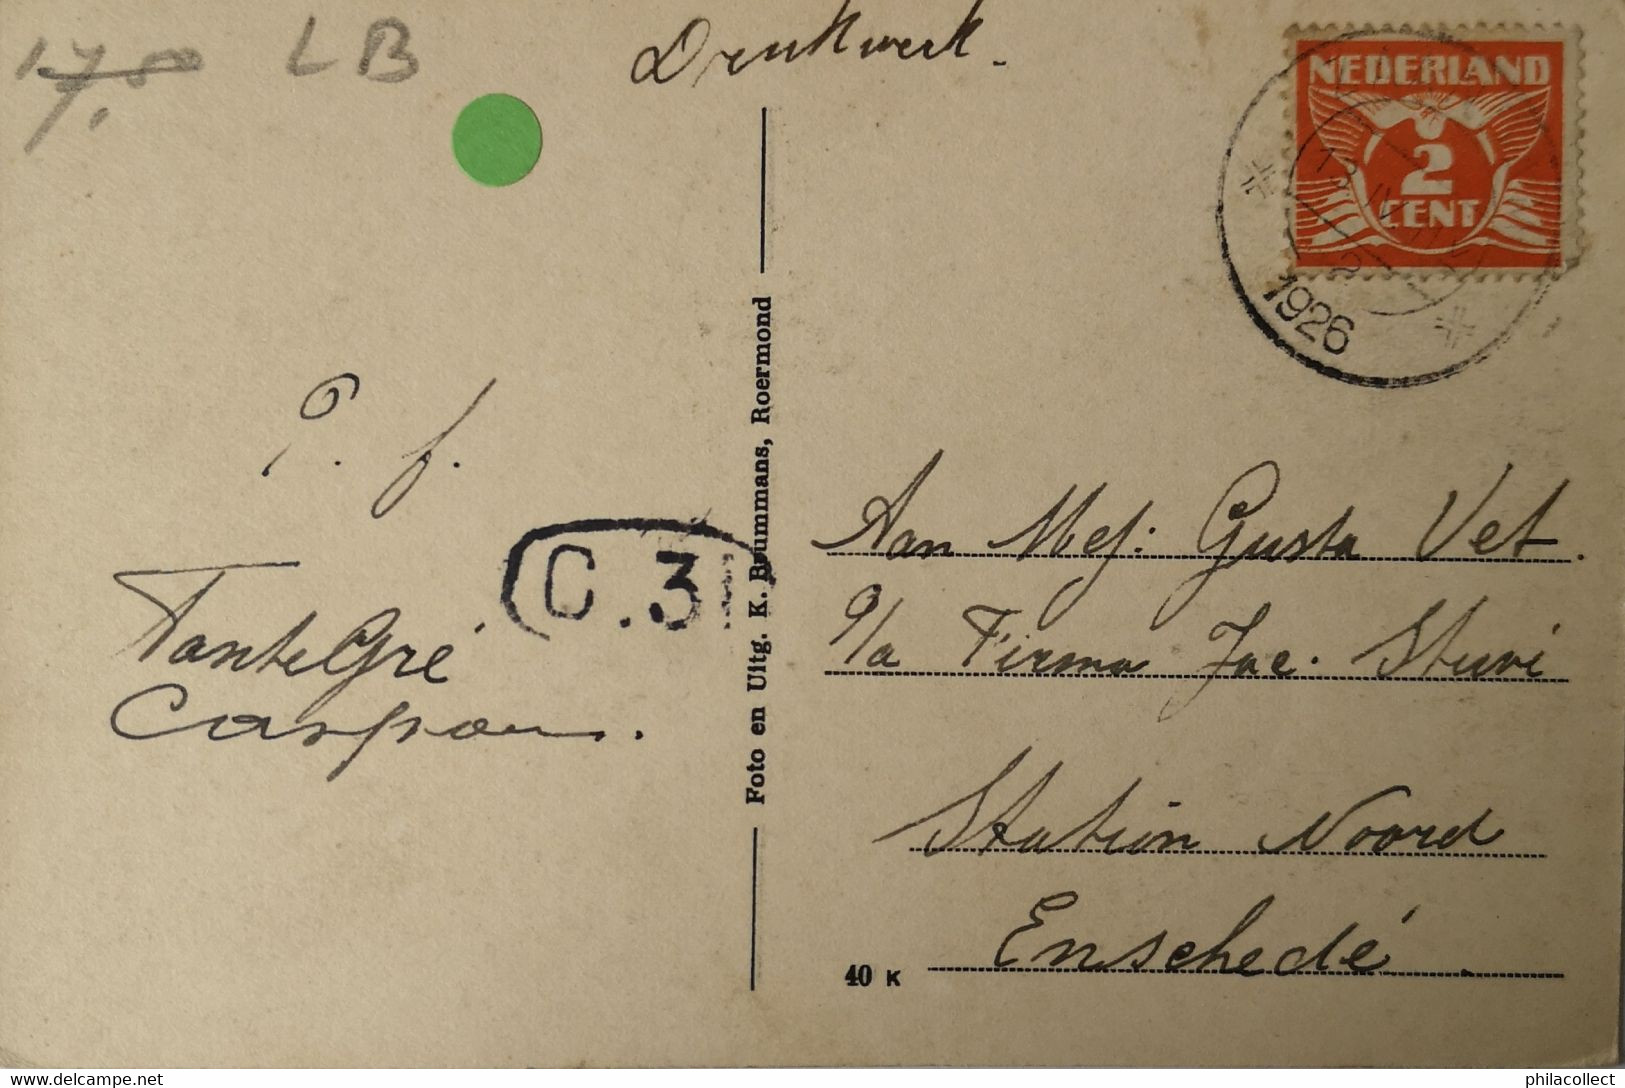 17,50 LB
7,
Drukwerk.
NEDERLAND
2
CENT
13 IV
1926
P. f.
Tante Gré
C.31
Foto en Uitg. K. Brummans, Roermond
Aan Mej: Gusta Vet.
p/a Firma Jac. Stuvé
Station Noord
Enschedé.
40 K
www.delcampe.net
philacollect